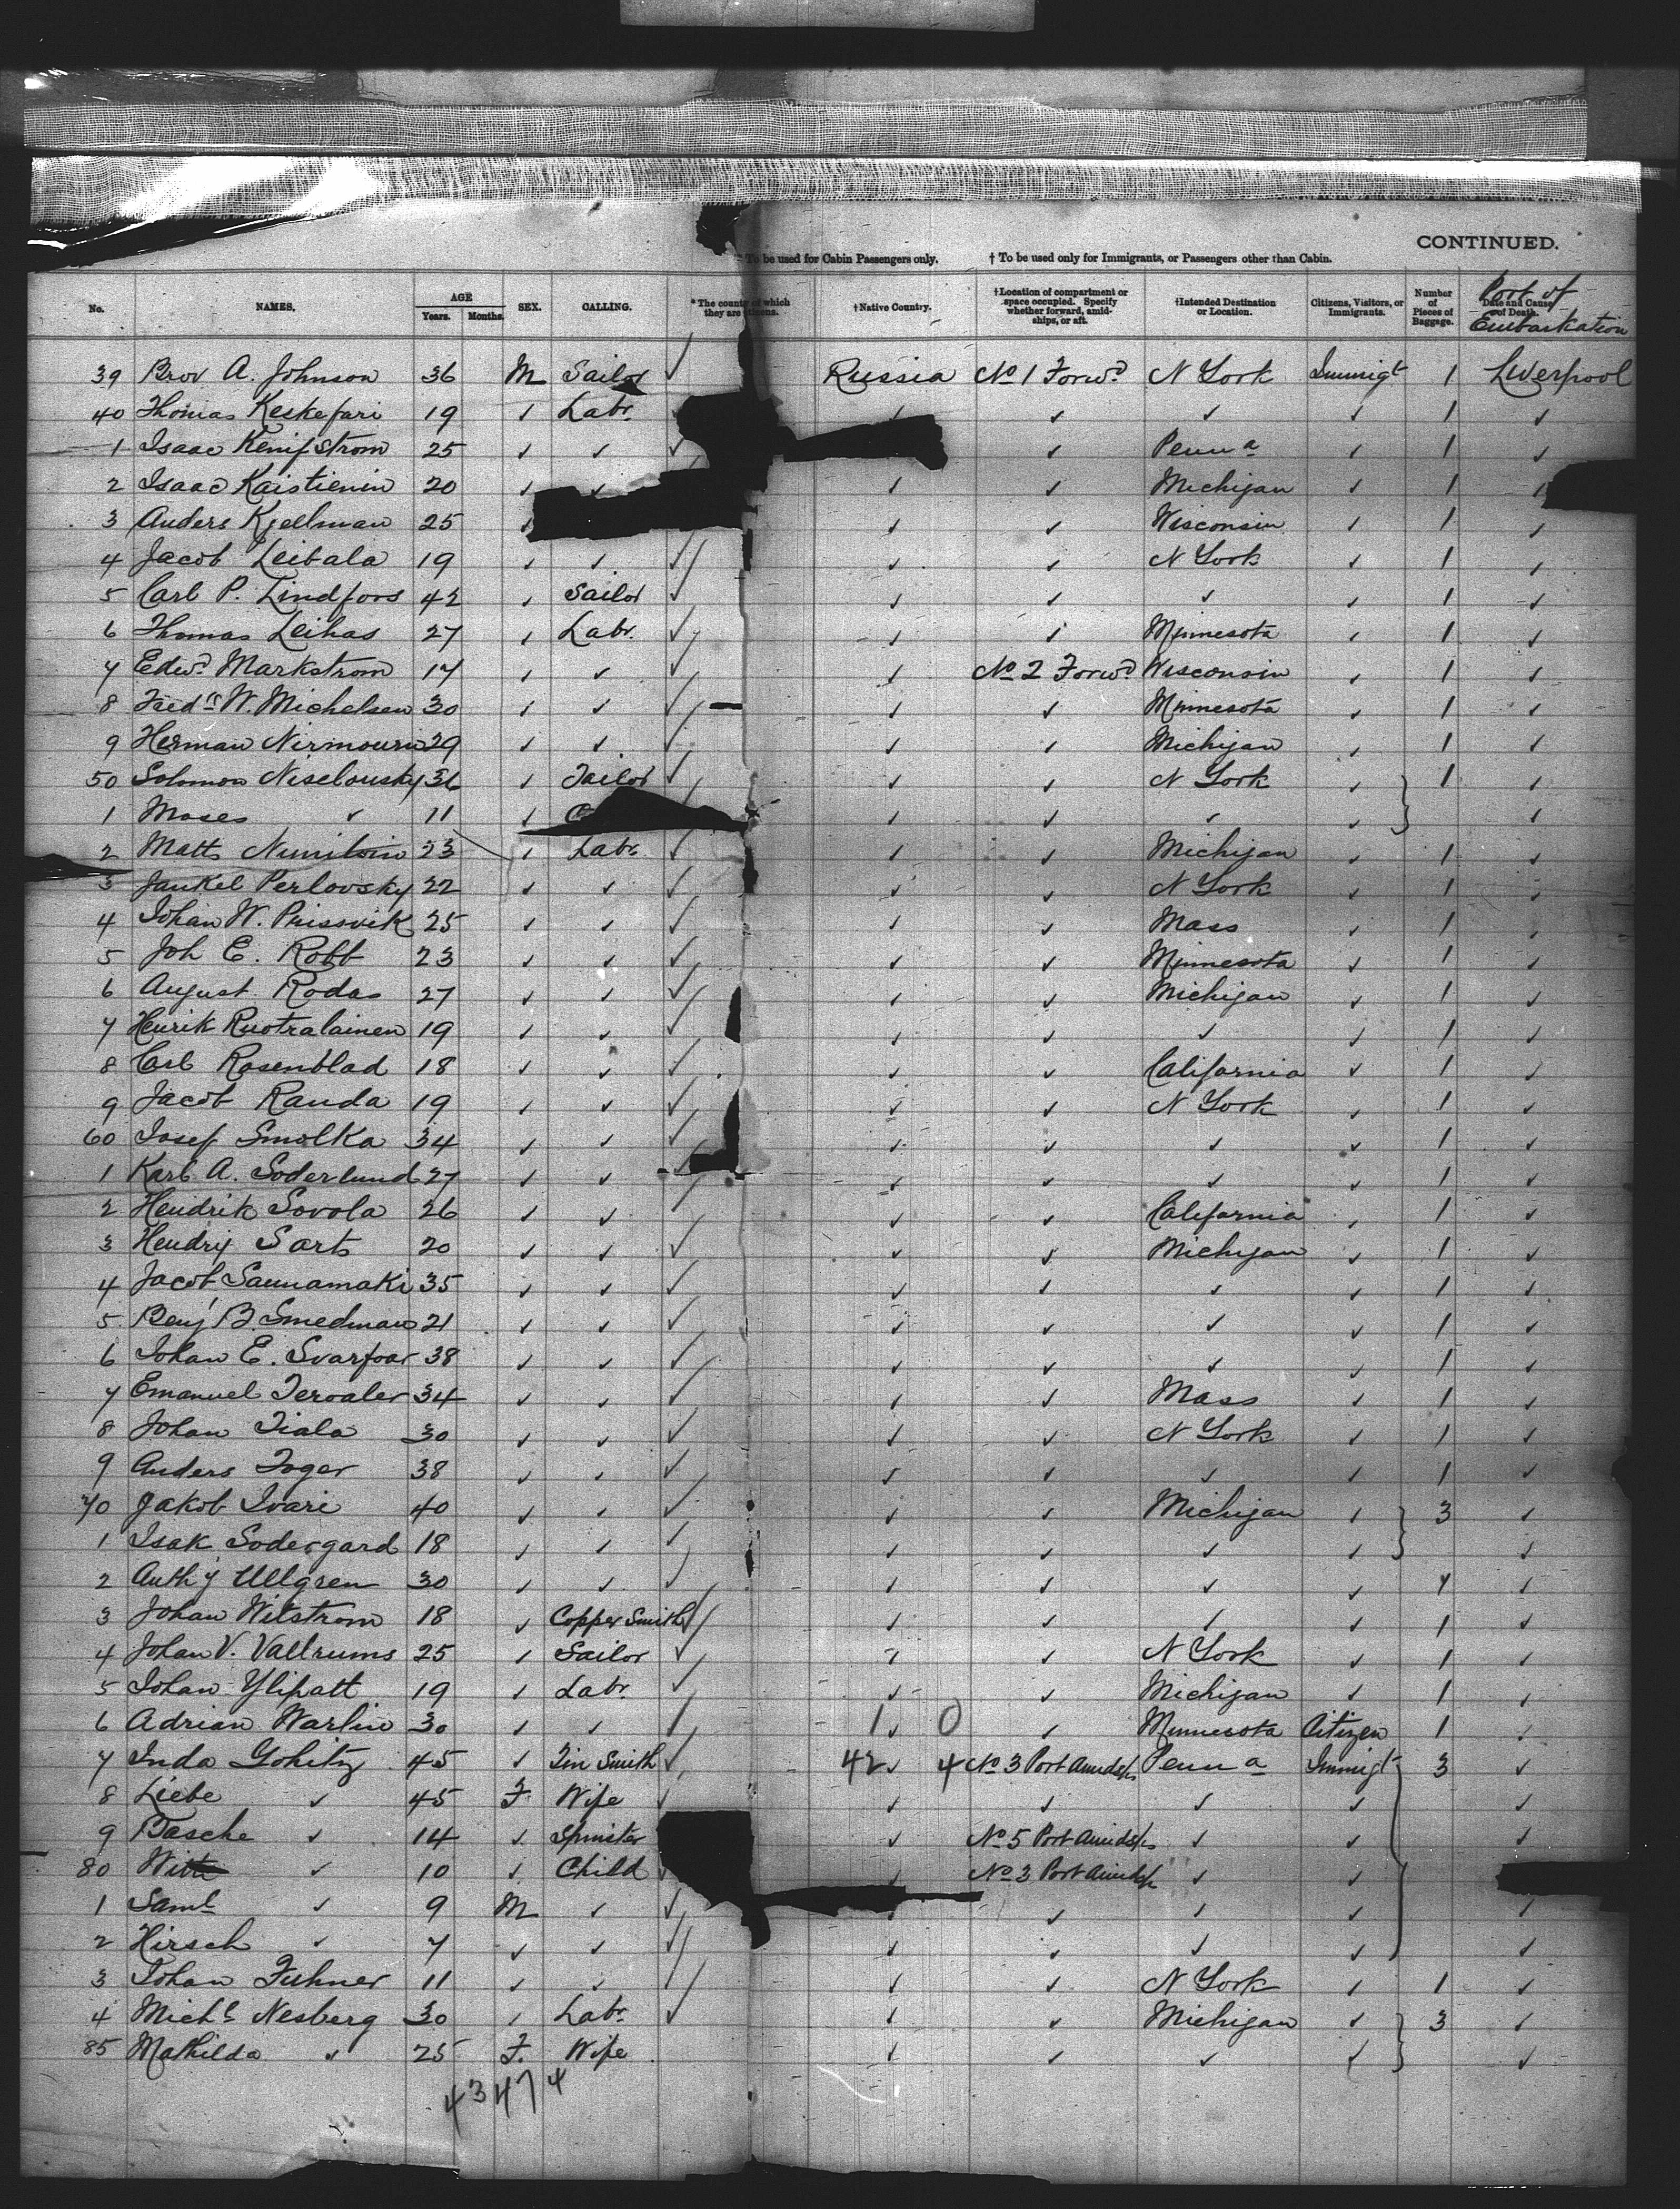 CONTINUED.
* To be used for Cabin Passengers only. † To be used only for Immigrants, or Passengers other than Cabin.
No. NAMES. AGE Years. Months. SEX. CALLING. * The county of which they are citizens. †Native Country. †Location of compartment or space occupied. Specify whether forward, amidships, or aft. †Intended Destination or Location. Citizens, Visitors, or Immigrants. Number of Pieces of Baggage. Date and Cause of Death. Port of Embarkation
39 Brov A. Johnson 36 M Sailor ✓ Russia No 1 Forwd N York Immigt 1 Liverpool
40 Thomas Keskefari 19 ✓ Labr. ✓ ✓ ✓ ✓ 1 ✓
1 Isaac 25 ✓ ✓ ✓ ✓ Penna ✓ 1 ✓
2 Isaac Kaistienin 20 ✓ ✓ ✓ ✓ Michigan ✓ 1 ✓
3 Anders Kjellman 25 ✓ ✓ ✓ Wisconsin ✓ 1 ✓
4 Jacob Leibala 19 ✓ ✓ ✓ ✓ ✓ N York ✓ 1 ✓
5 Carl P. Lindfors 42 ✓ Sailor ✓ ✓ ✓ ✓ ✓ 1 ✓
6 Thomas Leihas 27 ✓ Labr. ✓ ✓ ✓ Minnesota ✓ 1 ✓
7 Edwd Markstrom 17 ✓ ✓ ✓ ✓ No 2 Forwd Wisconsin ✓ 1 ✓
8 Fredk W. Michelsen 30 ✓ ✓ ✓ ✓ ✓ Minnesota ✓ 1 ✓
9 Herman 29 ✓ ✓ ✓ ✓ ✓ Michigan ✓ 1 ✓
50 Solomon Niselousky 36 ✓ Tailor ✓ ✓ ✓ N York ✓ 1 ✓
1 Moses ✓ 11 ✓ ✓ ✓ ✓ ✓ ✓
2 Matts 23 ✓ Labr ✓ ✓ ✓ Michigan ✓ 1 ✓
3 Jankel Perlovsky 22 ✓ ✓ ✓ ✓ ✓ N York ✓ 1 ✓
4 Johan W. Prissvik 25 ✓ ✓ ✓ ✓ ✓ Mass ✓ 1 ✓
5 Joh E. Robb 23 ✓ ✓ ✓ ✓ ✓ Minnesota ✓ 1 ✓
6 August Rodas 27 ✓ ✓ ✓ ✓ ✓ Michigan ✓ 1 ✓
7 Henrik Ruotralainen 19 ✓ ✓ ✓ ✓ ✓ ✓ ✓ 1 ✓
8 Carl Rosenblad 18 ✓ ✓ ✓ ✓ ✓ California ✓ 1 ✓
9 Jacob Randa 19 ✓ ✓ ✓ ✓ ✓ N York ✓ 1 ✓
60 Josef Smolka 34 ✓ ✓ ✓ ✓ ✓ ✓ ✓ 1 ✓
1 Karl A. Soderlund 27 ✓ ✓ ✓ ✓ ✓ ✓ ✓ 1 ✓
2 Hendrik Sovola 26 ✓ ✓ ✓ ✓ ✓ California ✓ 1 ✓
3 Hendrix Sarts 20 ✓ ✓ ✓ ✓ ✓ Michigan ✓ 1 ✓
4 Jacob Saunamaki 35 ✓ ✓ ✓ ✓ ✓ ✓ ✓ 1 ✓
5 Benj B. Smedman 21 ✓ ✓ ✓ ✓ ✓ ✓ ✓ 1 ✓
6 Johan E. Svarfvar 38 ✓ ✓ ✓ ✓ ✓ ✓ ✓ 1 ✓
7 Emanuel Teroaler 34 ✓ ✓ ✓ ✓ ✓ Mass ✓ 1 ✓
8 Johan Tiala 30 ✓ ✓ ✓ ✓ ✓ N York ✓ 1 ✓
9 Anders Toger 38 ✓ ✓ ✓ ✓ ✓ ✓ ✓ 1 ✓
70 Jakob Ivari 40 ✓ ✓ ✓ ✓ ✓ Michigan ✓ 3 ✓
1 Isak Sodergard 18 ✓ ✓ ✓ ✓ ✓ ✓ ✓ ✓
2 Anthy Ullgren 30 ✓ ✓ ✓ ✓ ✓ ✓ ✓ ✓
3 Johan Wilstrom 18 ✓ Copper Smith ✓ ✓ ✓ ✓ ✓ 1 ✓
4 Johan V. Vallrums 25 ✓ Sailor ✓ ✓ ✓ N York ✓ 1 ✓
5 Johan Ylipatt 19 ✓ Labr. ✓ ✓ ✓ Michigan ✓ 1 ✓
6 Adrian Warlin 30 ✓ ✓ 1 ✓ 0 ✓ Minnesota Citizen 1 ✓
7 Inda Gohitz 45 ✓ Tin Smith ✓ 42 ✓ 4 No 3 Port Amidsps Penna Immigt 3 ✓
8 Liebe ✓ 45 F Wife ✓ ✓ ✓ ✓ ✓ ✓
9 Basche ✓ 14 ✓ Spinster ✓ No 5 Port Amidsps ✓ ✓ ✓
80 ✓ 10 ✓ Child ✓ No 3 Port Amidsps ✓ ✓
1 Saml ✓ 9 M ✓ ✓ ✓ ✓ ✓ ✓ ✓
2 Hirsch ✓ 7 ✓ ✓ ✓ ✓ ✓ ✓ ✓ ✓
3 Johan Fuhner 11 ✓ ✓ ✓ ✓ N York ✓ 1 ✓
4 Michl Nesberg 30 ✓ Labr. ✓ ✓ ✓ Michigan ✓ 3 ✓
85 Mathilda ✓ 25 F. Wife ✓ ✓ ✓ ✓ ✓
43 47 4